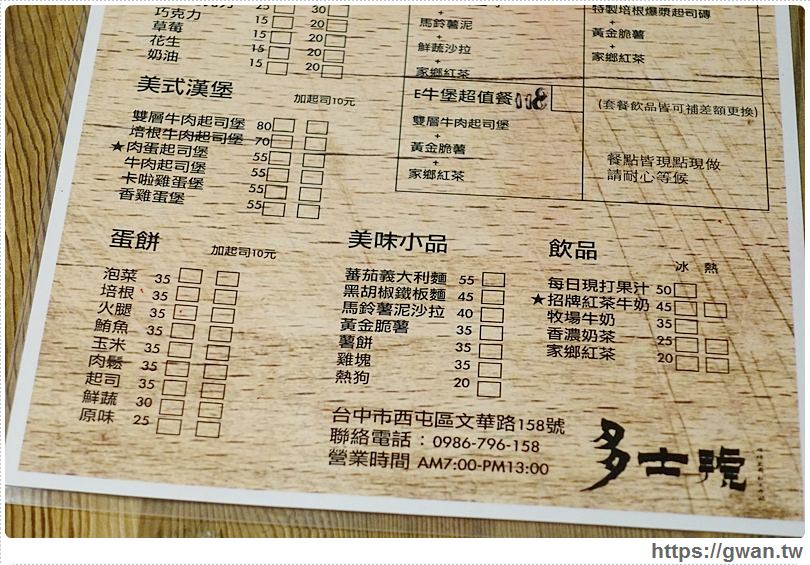 巧克力 15 20
草莓 15 20
花生 15 20
奶油 15 20
美式漢堡 加起司10元
雙層牛肉起司堡 80
培根牛肉起司堡 70
★肉蛋起司堡 55
牛肉起司堡 55
卡啦雞蛋堡 55
香雞蛋堡 55
+
馬鈴薯泥
+
鮮蔬沙拉
+
家鄉紅茶
特製培根爆漿起司磚
+
黃金脆薯
+
家鄉紅茶
E牛堡超值餐118
雙層牛肉起司堡
+
黃金脆薯
+
家鄉紅茶
(套餐飲品皆可補差額更換)
餐點皆現點現做
請耐心等候
蛋餅 加起司10元
泡菜 35
培根 35
火腿 35
鮪魚 35
玉米 35
肉鬆 35
起司 35
鮮蔬 30
原味 25
美味小品
蕃茄義大利麵 55
黑胡椒鐵板麵 45
馬鈴薯泥沙拉 40
黃金脆薯 35
薯餅 35
雞塊 35
熱狗 20
飲品 冰 熱
每日現打果汁 50
★招牌紅茶牛奶 45
牧場牛奶 35
香濃奶茶 25
家鄉紅茶 20
台中市西屯區文華路158號
聯絡電話：0986-796-158
營業時間 AM7:00-PM13:00
多士號
https://gwan.tw